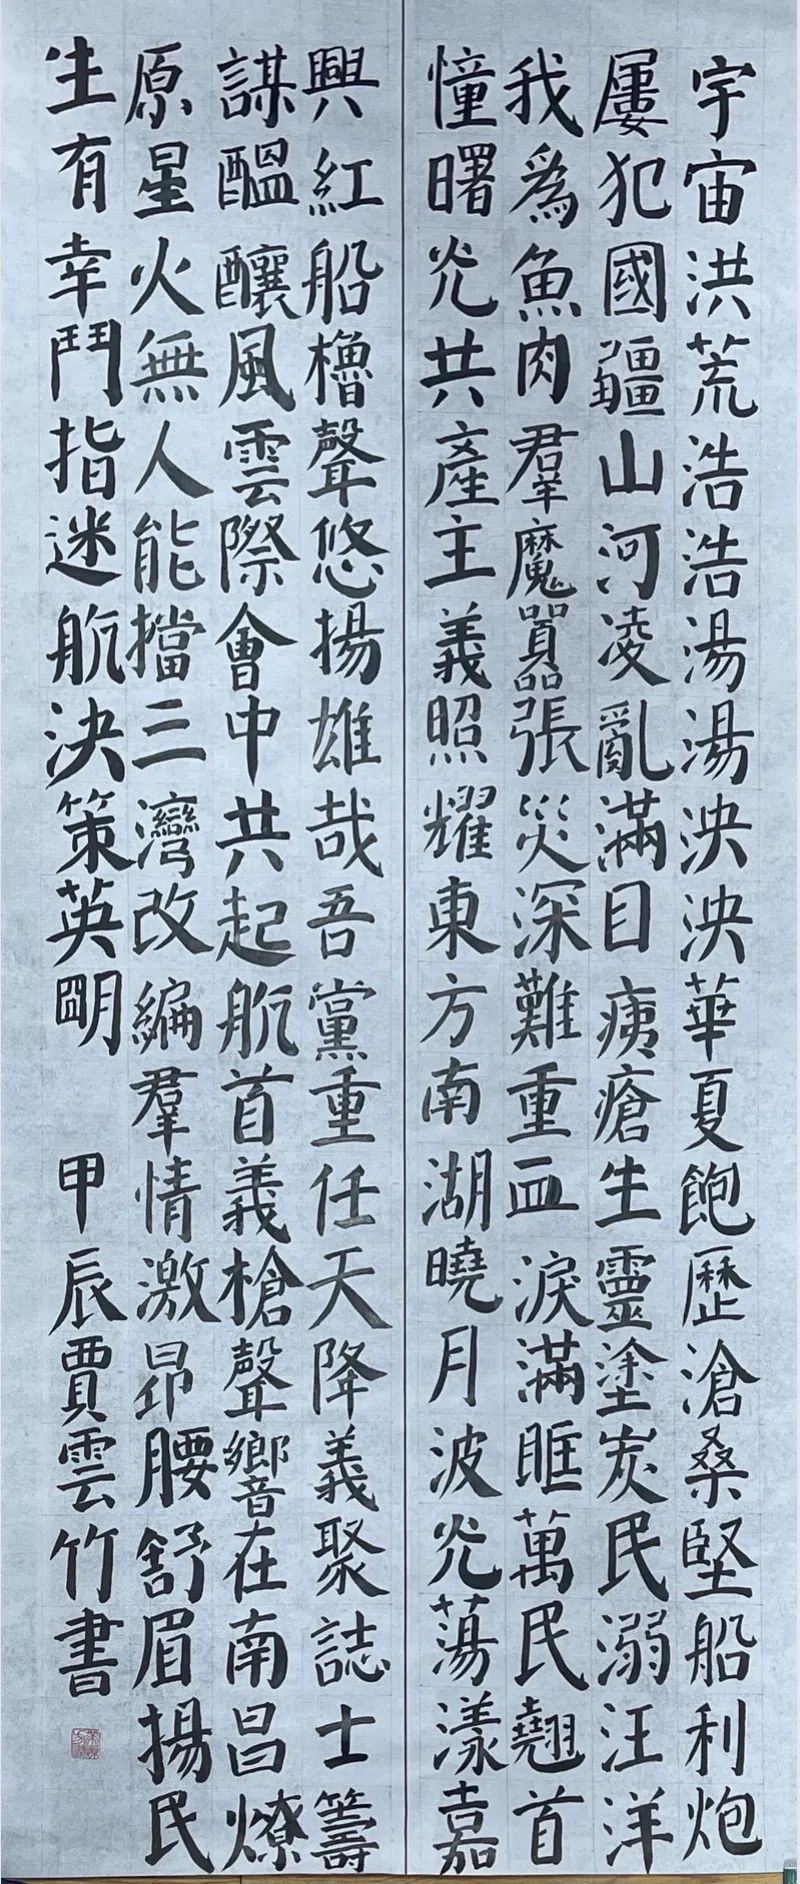 宇宙洪荒浩浩湯湯泱泱華夏飽歷滄桑堅船利炮
屢犯國疆山河凌亂滿目痍瘡生靈塗炭民溺汪洋
我爲魚肉羣魔囂張災深難重血淚滿眶萬民翹首
憧曙光共產主義照耀東方南湖曉月波光蕩漾嘉
興紅船櫓聲悠揚雄哉吾黨重任天降義聚誌士籌
謀醞釀風雲際會中共起航首義槍聲響在南昌燎
原星火無人能擋三灣改編羣情激昂腰舒眉揚民
生有幸鬥指迷航決策英明
甲辰賈雲竹書